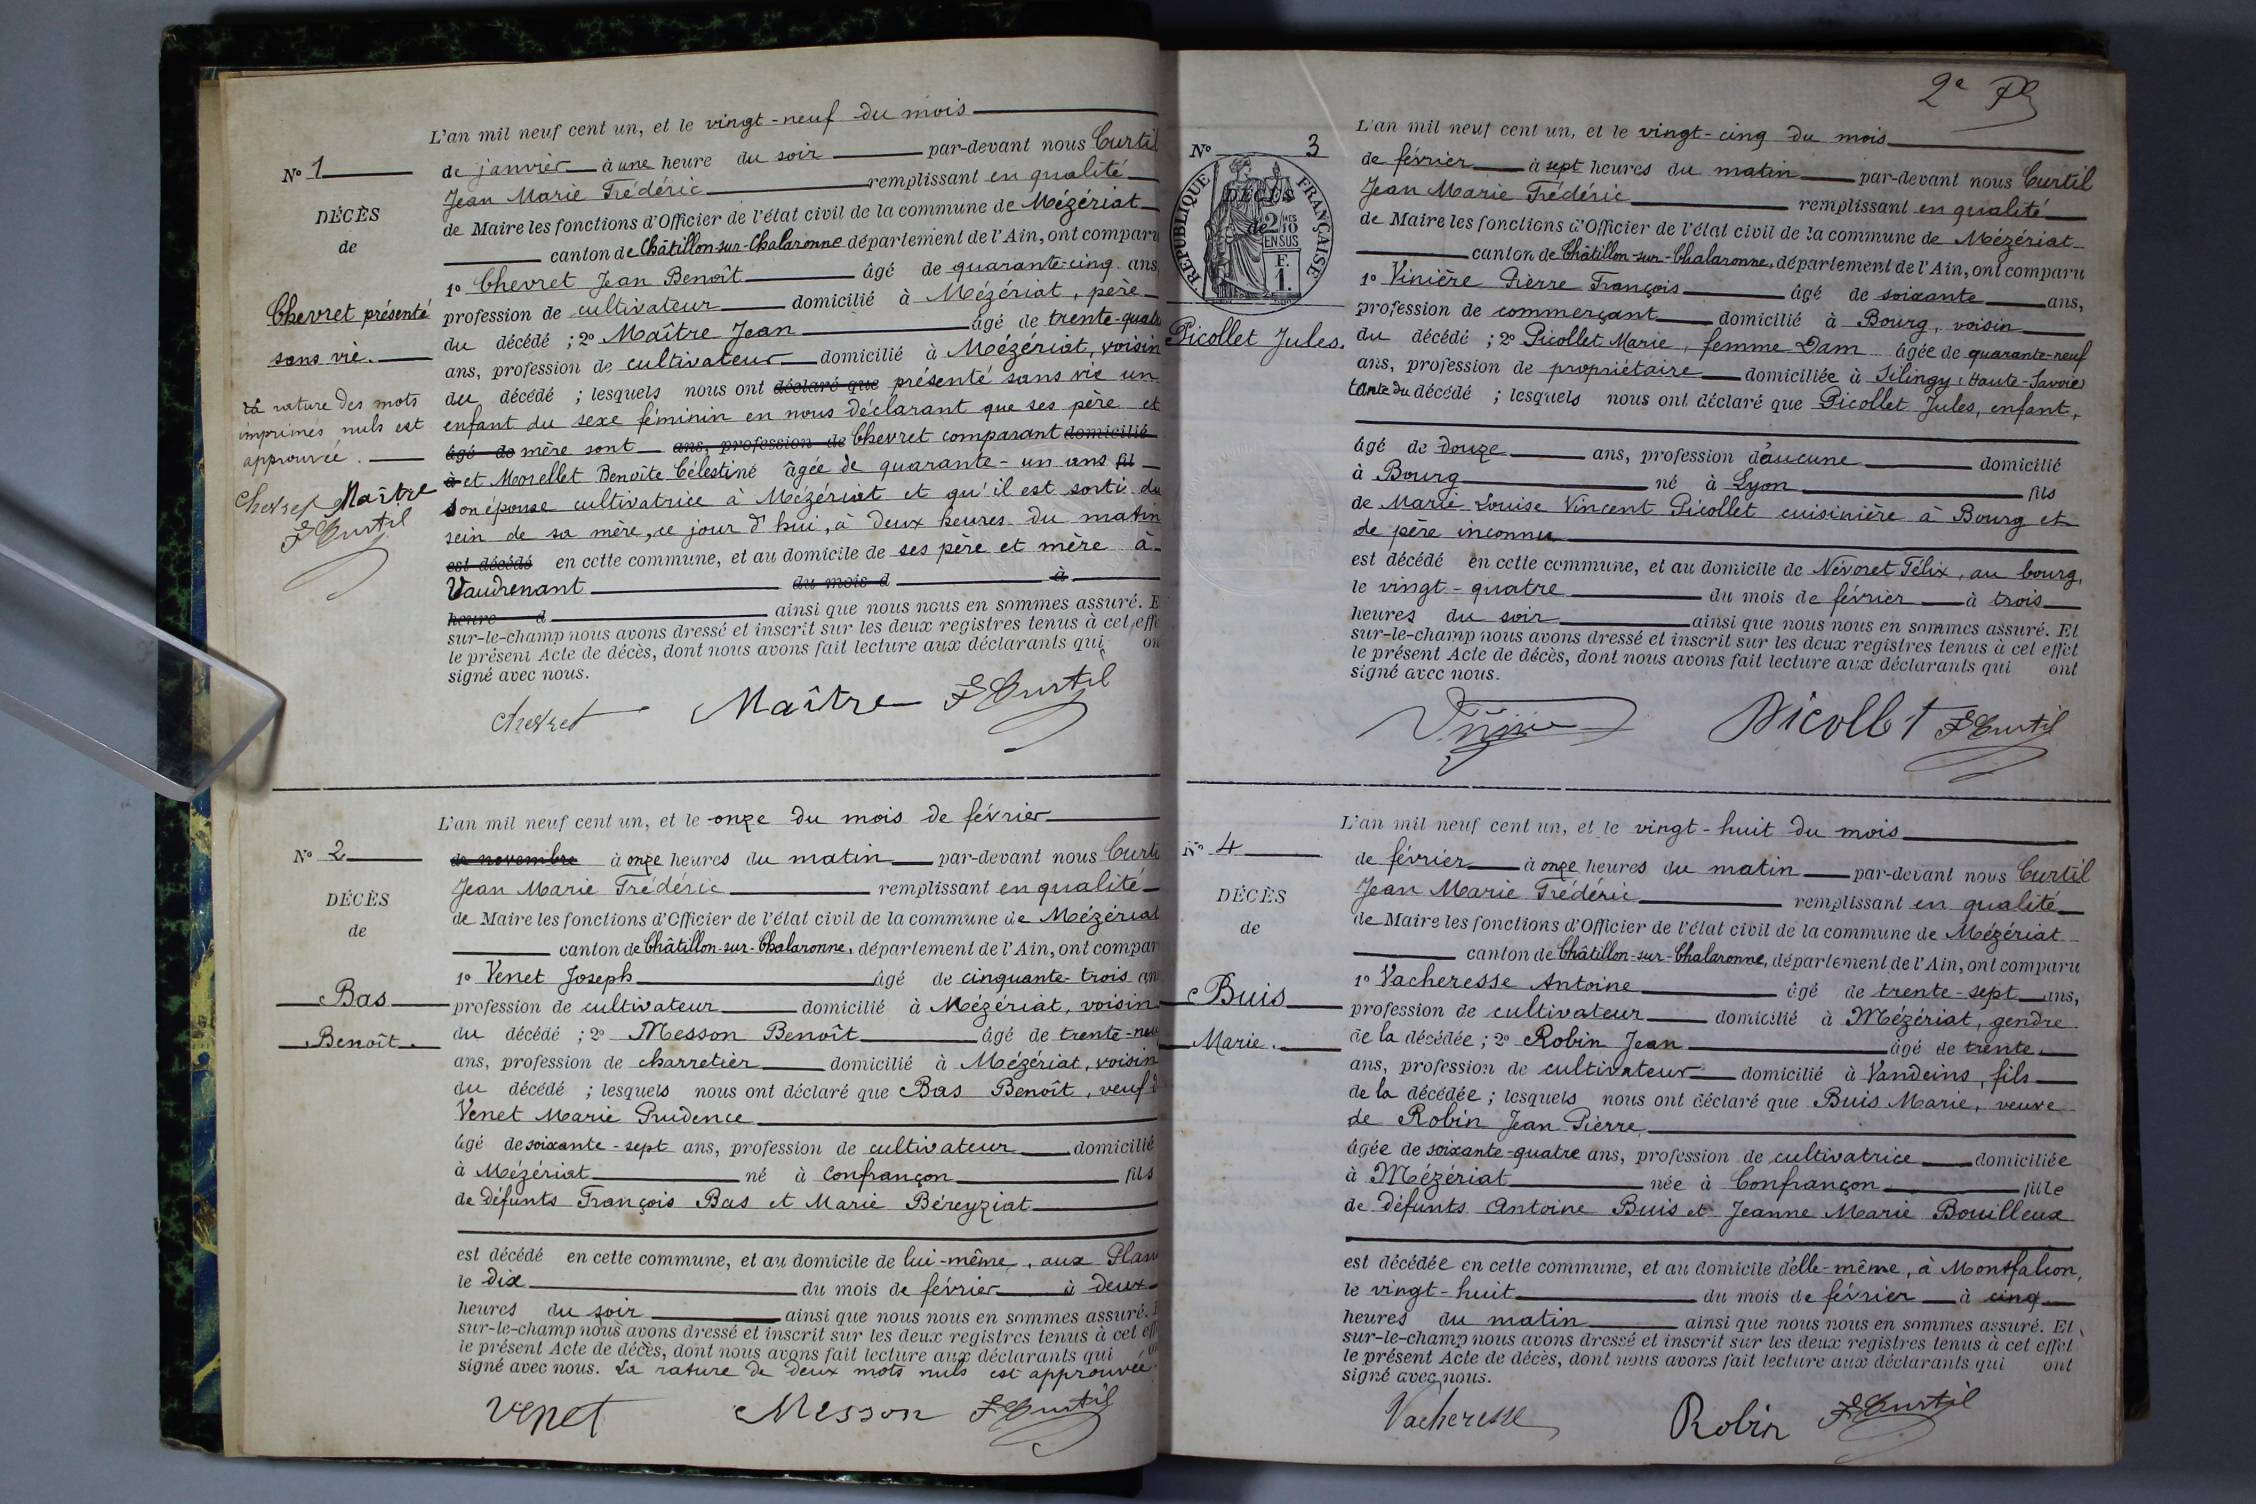 L'an mil neuf cent un, et le vingt-neuf du mois
N° 1
DÉCÈS
de
Chevret présenté
sans vie.
La rature des mots
imprimés nuls est
approuvée.
Chevret Maître
F Curtil
de janvier à une heure du soir par-devant nous Curtil
Jean Marie Frédéric remplissant en qualité
de Maire les fonctions d'Officier de l'état civil de la commune de Mézériat
canton de Châtillon-sur-Chalaronne département de l'Ain, ont comparu
1° Chevret Jean Benoît âgé de quarante-cinq ans,
profession de cultivateur domicilié à Mézériat, père
du décédé ; 2° Maître Jean âgé de trente-quatre
ans, profession de cultivateur domicilié à Mézériat, voisin
du décédé ; lesquels nous ont déclaré que présenté sans vie un
enfant du sexe féminin en nous déclarant que ses père et
âgé de mère sont ans, profession de Chevret comparant domicilié
à et Morellet Benoîte Célestine âgée de quarante-un ans fil
son épouse cultivatrice à Mézériat et qu'il est sorti du
sein de sa mère, ce jour d'hui, à deux heures du matin
est décédé en cette commune, et au domicile de ses père et mère à
Vaudrenant du mois d à
heure d ainsi que nous nous en sommes assuré. E
sur-le-champ nous avons dressé et inscrit sur les deux registres tenus à cet effe
le présent Acte de décès, dont nous avons fait lecture aux déclarants qui on
signé avec nous.
Chevret Maître F Curtil
L'an mil neuf cent un, et le onze du mois de février
N° 2
DÉCÈS
de
Bas
Benoît.
de novembre à onze heures du matin par-devant nous Curti
Jean Marie Frédéric remplissant en qualité
de Maire les fonctions d'Officier de l'état civil de la commune de Mézériat
canton de Châtillon-sur-Chalaronne, département de l'Ain, ont compar
1° Venet Joseph âgé de cinquante-trois an
profession de cultivateur domicilié à Mézériat, voisin
du décédé ; 2° Messon Benoît âgé de trente-neu
ans, profession de charretier domicilié à Mézériat, voisin
du décédé ; lesquels nous ont déclaré que Bas Benoît, veuf d
Venet Marie Prudence
âgé de soixante-sept ans, profession de cultivateur domicilié
à Mézériat né à Confrançon fils
de défunts François Bas et Marie Béreyziat
est décédé en cette commune, et au domicile de lui-même, aux Plan
le dix du mois de février à deux
heures du soir ainsi que nous nous en sommes assuré.
sur-le-champ nous avons dressé et inscrit sur les deux registres tenus à cet eff
le présent Acte de décès, dont nous avons fait lecture aux déclarants qui
signé avec nous. La rature de deux mots nuls est approuvée.
Venet Messon F Curtil
2e
L'an mil neuf cent un, et le vingt-cinq du mois
N° 3
RÉPUBLIQUE FRANÇAISE
DÉCÈS
2/10
de
EN SUS
F.
1.
Picollet Jules.
de février à sept heures du matin par-devant nous Curtil
Jean Marie Frédéric remplissant en qualité
de Maire les fonctions d'Officier de l'état civil de la commune de Mézériat
canton de Châtillon-sur-Chalaronne, département de l'Ain, ont comparu
1° Vinière Pierre François âgé de soixante ans,
profession de commerçant domicilié à Bourg, voisin
du décédé ; 2° Picollet Marie, femme Dam âgée de quarante-neuf
ans, profession de propriétaire domiciliée à Silingy (Haute-Savoie)
tante du décédé ; lesquels nous ont déclaré que Picollet Jules, enfant,
âgé de douze ans, profession d'aucune domicilié
à Bourg né à Lyon fils
de Marie Louise Vincent Picollet cuisinière à Bourg et
de père inconnu
est décédé en cette commune, et au domicile de Névoret Félix, au bourg,
le vingt-quatre du mois de février à trois
heures du soir ainsi que nous nous en sommes assuré. Et
sur-le-champ nous avons dressé et inscrit sur les deux registres tenus à cet effet
le présent Acte de décès, dont nous avons fait lecture aux déclarants qui ont
signé avec nous.
Picollet F Curtil
L'an mil neuf cent un, et le vingt-huit du mois
N° 4
DÉCÈS
de
Buis
Marie.
de février à onze heures du matin par-devant nous Curtil
Jean Marie Frédéric remplissant en qualité
de Maire les fonctions d'Officier de l'état civil de la commune de Mézériat
canton de Châtillon-sur-Chalaronne, département de l'Ain, ont comparu
1° Vacheresse Antoine âgé de trente-sept ans,
profession de cultivateur domicilié à Mézériat, gendre
de la décédée ; 2° Robin Jean âgé de trente
ans, profession de cultivateur domicilié à Vandeins, fils
de la décédée ; lesquels nous ont déclaré que Buis Marie, veuve
de Robin Jean Pierre
âgée de soixante-quatre ans, profession de cultivatrice domiciliée
à Mézériat née à Confrançon fille
de défunts Antoine Buis et Jeanne Marie Bouilloux
est décédée en cette commune, et au domicile d'elle-même, à Montfalcon,
le vingt-huit du mois de février à cinq
heures du matin ainsi que nous nous en sommes assuré. Et
sur-le-champ nous avons dressé et inscrit sur les deux registres tenus à cet effet
le présent Acte de décès, dont nous avons fait lecture aux déclarants qui ont
signé avec nous.
Vacheresse Robin F Curtil